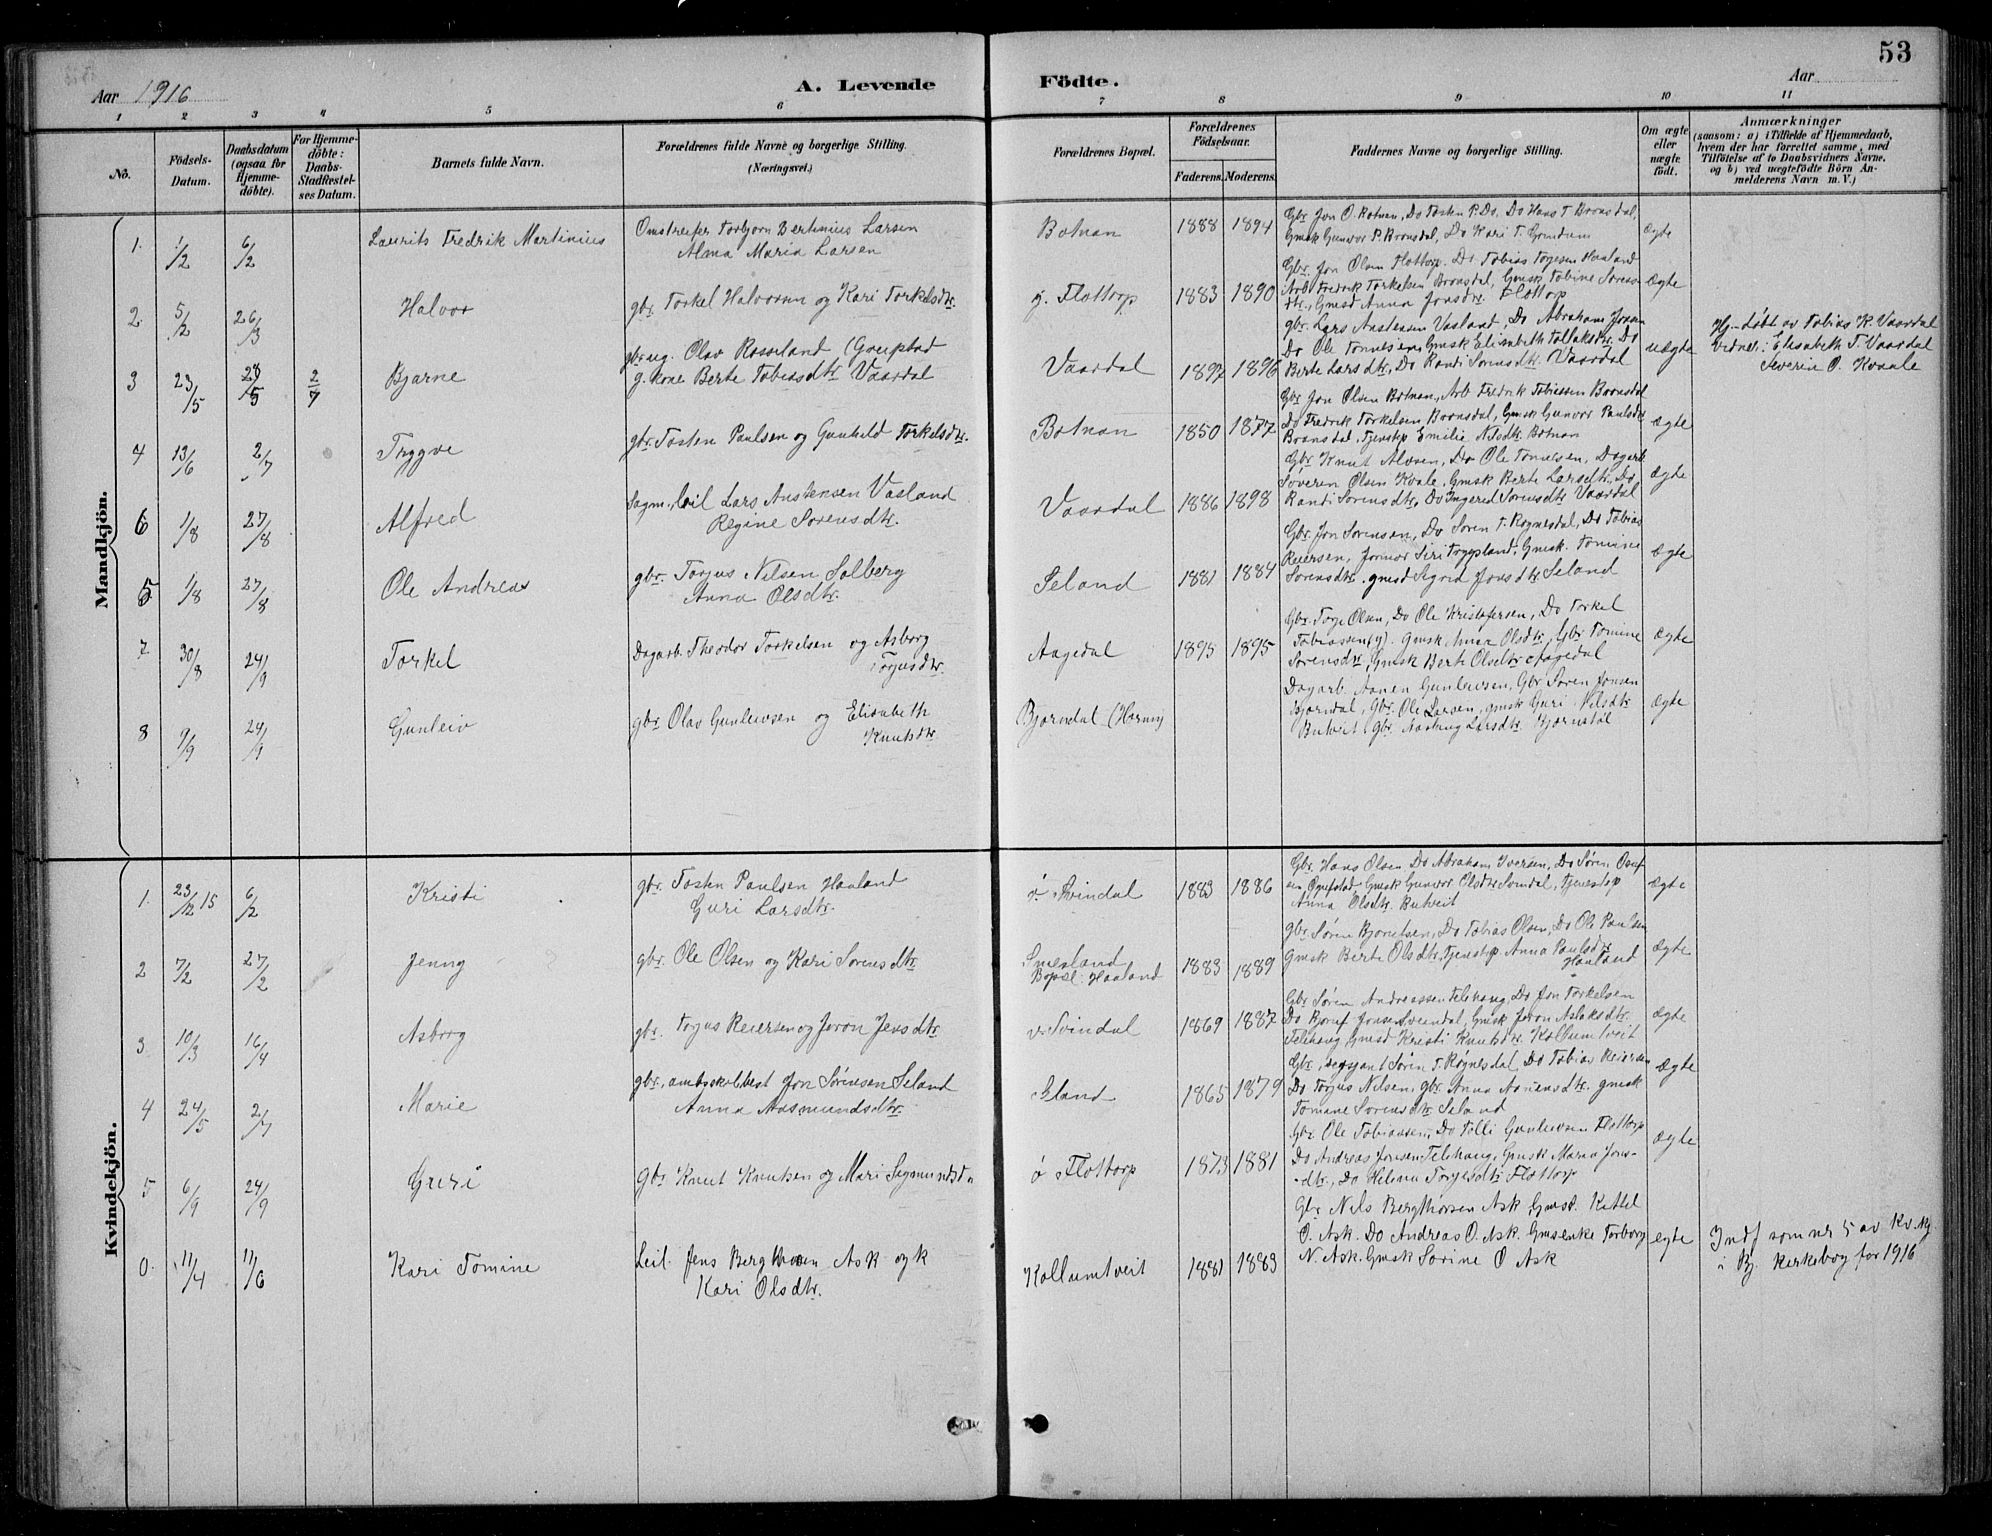 53
Aar 1916
A. Levende
Födte.
Aar
1 2 3 4 5 6 7 8 9 10 11
No.
Födsels-Datum.
Daabsdatum (ogsaa for Hjemme-döbte).
For Hjemme-döbte: Daabs-Stadfæstel-ses Datum.
Barnets fulde Navn.
Forældrenes fulde Navne og borgerlige Stilling. (Næringsvei.)
Forældrenes Bopæl.
Forældrenes Födselsaar.
Faderens. Moderens.
Faddernes Navne og borgerlige Stilling.
Om ægte eller uægte födt.
Anmærkninger
(saasom: a) i Tilfælde af Hjemmedaab, hvem der har forrettet samme, med Tilföielse af to Daabsvidners Navne, og b) ved uægtefödte Börn Anmelderens Navn m. V.)
Mandkjön.
1. 1/2 6/2 Laurits Fredrik Martinius
Omstreifer Torbjorn Bertinius Larsen
Alma Maria Larsen
Botnan 1888 1894
Gbr Jon O. Botnan, Do Tosten P. Do. Do Hans T. Bronsdal,
Gmsk Gunvor P. Bronsdal, Do Kari T.
ægte
2. 5/2 26/3 Halvor
gbr. Torkel Halvorsen og Kari Torkelsdtr.
Flottorp 1883 1890
Gbr. Jon Olsen Flottorp. Do Tobias Torjesen Haaland
Arb Fredrik Torkelsen Bronsdal, Gmsk Tobine Sorens-
dtr., Gmsd Anna Jonsdtr. Flottorp
ægte
3 23/5 28/5 2/7 Bjarne
Olav Rosseland
Berte Tobiasdtr Vaardal
Vaardal 1897 1896
gbr. Lars Anstensen Vasland, Do Abraham Jonsen
Do Ole Tonnesen, Gmsk Elisabeth Tollaksdtr. Do
Berte Larsdtr, Do Randi Sorensdtr. Vaardal
uægte
Hj-døbt av Tobias K. Vaardal
vidner: Elisabeth T. Vaardal
Severin O. Kvaale
4 13/6 2/7 Trygve
gbr. Tosten Paulsen og Gunhild Torkelsdtr.
Botnan 1850 1877
Gbr Jon Olsen Botnan, Arb Fredrik Tobiassen Bronsdal
Do Fredrik Torkelsen Bronsdal, Gmsk Gunvor Paulsdtr
Bronsdal, Tjenstep Emilie Nilsdtr. Botnan
ægte
6 1/8 27/8 Alfred
Lars Anstensen Vasland
Regine Sorensdtr.
Vaardal 1886 1898
Gbr Knut Alvsen, Do Ole Tonnesen, Dagarb
Søveren Olsen Kvale, Gmsk Berte Larsdtr., Do
Randi Sorensdtr, Do Ingered Sorensdtr Vaardal
ægte
5 1/8 27/8 Ole Andreas
gbr. Torjus Nilsen Solberg
Anna Olsdtr.
Seland 1881 1884
Gbr. Jon Sorensen, Do Soren T. Rognesdal, Do Tobias
Reiersen, Siri Tryppland, Gmsk. Tomine
Sorensdtr. gmsd Sigrid Jonsdtr Seland
ægte
7 30/8 24/9 Torkel
Dagarb. Theodor Torkelsen og Asborg
Torjusdtr.
Aagedal 1895 1895
Gbr. Torje Olsen, Do Ole Kristofersen, Do Torkel
Tobiassen, Gmsk Anna Olsdtr, Gbr Tomine
Sorensdtr, Gmsk Berte Olsdtr Aagedal
ægte
8 9/9 24/9 Gunleiv
gbr Olav Gunleivsen og Elisabeth
Knutsdtr
Bjorndal 
Dagarb. Aanen Gunleivsen, Gbr Soren Jonsen
Bjorndal, Gbr. Ole Larsen, gmsk Guri Nilsdtr
Butveit, Gbr. Larsdtr.
ægte
Kvindekjön.
1. 23/12 15 6/2 Kristi
gbr. Tosten Paulsen Haaland
Guri Larsdtr.
ø. Svindal 1883 1886
Gbr. Hans Olsen Do Abraham Iversen, Do Søren
Gmsk Gunvor Olsdtr Svindal, Tjenestep
Anna Olsdtr. Butveit
ægte
2 7/2 27/2 Jenny
gbr. Ole Olsen og Kari Sorensdtr
Smesland
Bopæl: Haaland 1883 1889
gbr Søren Bjornsen, Do Tobias Olsen, Do Ole Paulsen
Gmsk Berte Olsdtr, Tjenstep. Anna Paulsdtr.
Haaland
ægte
3 10/3 16/4 Asborg
gbr. Torjus Reiersen og Joron Jensdtr
v. Svindal 1869 1887
Gbr Søren Andreassen Telehaug, Do Jon Torkelsen
Do Bjoruf Jonsen Sveindal, Gmsk Joron Aslaksdtr.
Telehaug, Gmsd Kristi Knutsdtr. Kollumtveit
ægte
4 24/5 2/7 Marie
gbr. amtsskolbest Jon Sørensen Seland
Anna Aasmundsdtr.
Seland 1865 1879
Gbr, sergant Søren T. Røgnesdal, Do Tobias Reiersen
Do Torjus Nilsen, gbr. Anna Aanensdtr. gmsk
Tomine Sorensdtr Seland
ægte
5 6/9 24/9 Guri
Gbr Knut Knutsen og Mari Sigmundsd
ø Flottorp 1873 1881
Gbr. Ole Tobiassen, Do Tolli Gunleivsen Flottorp
Do Andreas Jonsen Telehaug, Gmsk Maria Jons-
dtr., Do Helene Torjesdtr Flottorp
ægte
0. 11/4 11/6 Kari Tomine
Leil. Jens Bergthorsen Ask og k
Kari Olsdtr.
Kollumtveit 1881 1883
Gbr Nils Bergthorsen Ask, Gmsd. Kittel
O. Ask. Do Andreas O. Ask. Gmsenke Torborg
N. Ask. Gmsk Sorine O Ask
egte
Indf som nr 5 av Kv.kj
i Bj. kirkebog for 1916